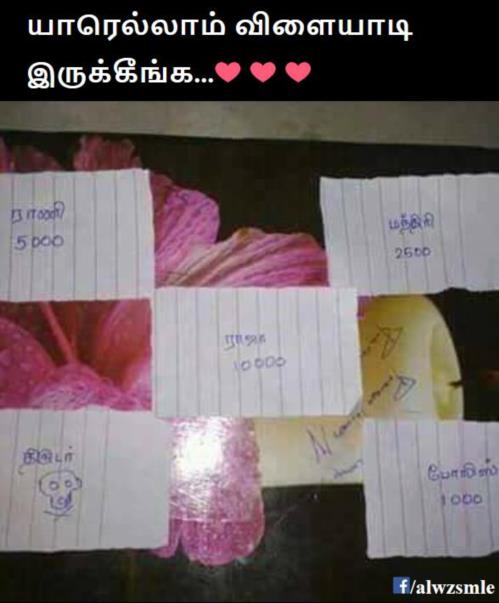 யாரெல்லாம் விளையாடி
இருக்கீங்க...
ராணி
5000
மந்திரி
2500
ராஜா
10000
திருடர்
போலிஸ்
1000
f/alwzsmle